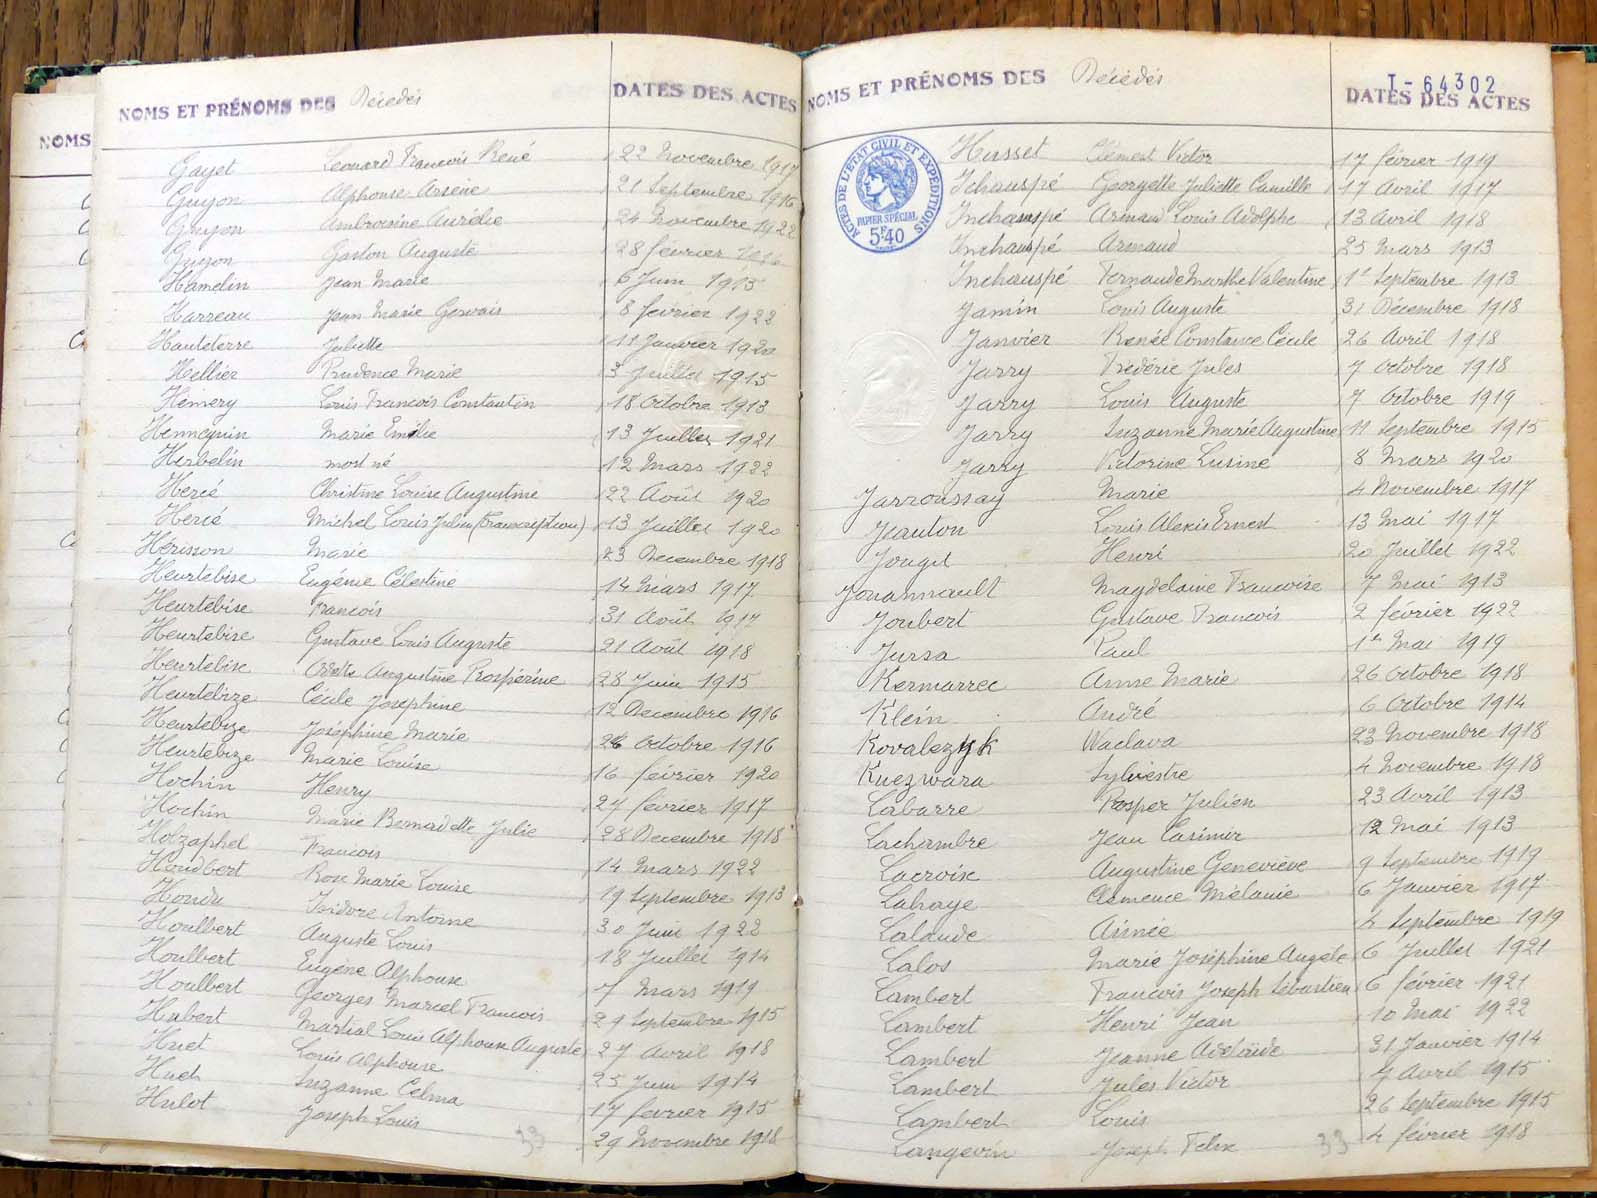 NOMS
NOMS ET PRÉNOMS DES Décédés DATES DES ACTES
Gayet Léonard François René 22 Novembre 1917
Guyon Alphonse Arsène 21 Septembre 1916
Guyon Ambroisine Aurélie 24 Novembre 1922
Guyon Gaston Auguste 28 février
Hamelin Jean Marie 6 Juin 1915
Harreau Jean Marie Gervais 8 février 1922
Hauteterre Juliette 11 Janvier 1920
Hellier Prudence Marie 3 Juillet 1915
Hemery Louis François Constantin 18 Octobre 1913
Hennequin Marie Emilie 13 Juillet 1921
Herbelin mort né 12 Mars 1922
Hercé Christine Louise Augustine 22 Août 1920
Hercé Michel Louis Julien (transcription) 13 Juillet 1920
Hérisson Marie 23 Decembre 1918
Heurtebise Eugénie Célestine 14 Mars 1917
Heurtebise François 31 Août 1917
Heurtebise Gustave Louis Auguste 21 Août 1918
Heurtebise Odette Augustine Prospérine 28 Juin 1915
Heurtebize Cécile Joséphine 12 Decembre 1916
Heurtebize Joséphine Marie 26 Octobre 1916
Heurtebize Marie Louise 16 février 1920
Hochin Henry 27 février 1917
Hochin Marie Bernadette Julie 28 Decembre 1918
Holzaphel François 14 Mars 1922
Houdbert Rose Marie Louise 19 Septembre 1913
Houdu Isidore Antoine 30 Juin 1922
Houlbert Auguste Louis 18 Juillet 1914
Houlbert Eugène Alphonse 7 Mars 1919
Houlbert Georges Marcel François 29 Septembre 1915
Hubert Martial Louis Alphonse Auguste 27 Avril 1918
Huet Louis Alphonse 25 Juin 1914
Huet Suzanne Celma 17 février 1915
Hulot Joseph Louis 29 Novembre 1918
33
NOMS ET PRÉNOMS DES Décédés DATES DES ACTES
T-64302
ACTES DE L'ÉTAT CIVIL ET EXPÉDITIONS
PAPIER SPÉCIAL
5F.40
Husset Clément Victor 17 février 1919
Ichauspé Georgette Juliette Camille 17 Avril 1917
Inchauspé Armand Louis Adolphe 13 Avril 1918
Inchauspé Armand 25 Mars 1913
Inchauspé Fernande Marthe Valentine 1er Septembre 1913
Jamin Louis Auguste 31 Décembre 1918
Janvier Renée Constance Cécile 26 Avril 1918
Jarry Frédéric Jules 7 Octobre 1918
Jarry Louis Auguste 7 Octobre 1919
Jarry Suzanne Marie Augustine 11 Septembre 1915
Jarry Victorine Lusine 8 Mars 1920
Jarroussay Marie 4 Novembre 1917
Jeanton Louis Alexis Ernest 13 Mai 1917
Jouget Henri 20 Juillet 1922
Jouannault Magdeleine Françoise 7 Mai 1913
Joubert Gustave François 2 février 1922
Jursa Paul 1er Mai 1919
Kermarrec Anne Marie 26 Octobre 1918
Klein André 6 Octobre 1914
Kovalezyk Waclava 23 Novembre 1918
Kuezwara Sylvestre 4 Novembre 1918
Labarre Prosper Julien 23 Avril 1913
Lachambre Jean Casimir 12 Mai 1913
Lacroix Augustine Geneviève 9 Septembre 1919
Lahaye Clémence Mélanie 6 Janvier 1917
Lalande Aimée 4 Septembre 1919
Lalos Marie Joséphine Angèle 6 Juillet 1921
Lambert François Joseph Sébastien 6 février 1921
Lambert Henri Jean 10 Mai 1922
Lambert Jeanne Adélaïde 31 Janvier 1914
Lambert Jules Victor 7 Avril 1915
Lambert Louis 26 Septembre 1915
Langevin Joseph Felix 4 février 1918
33